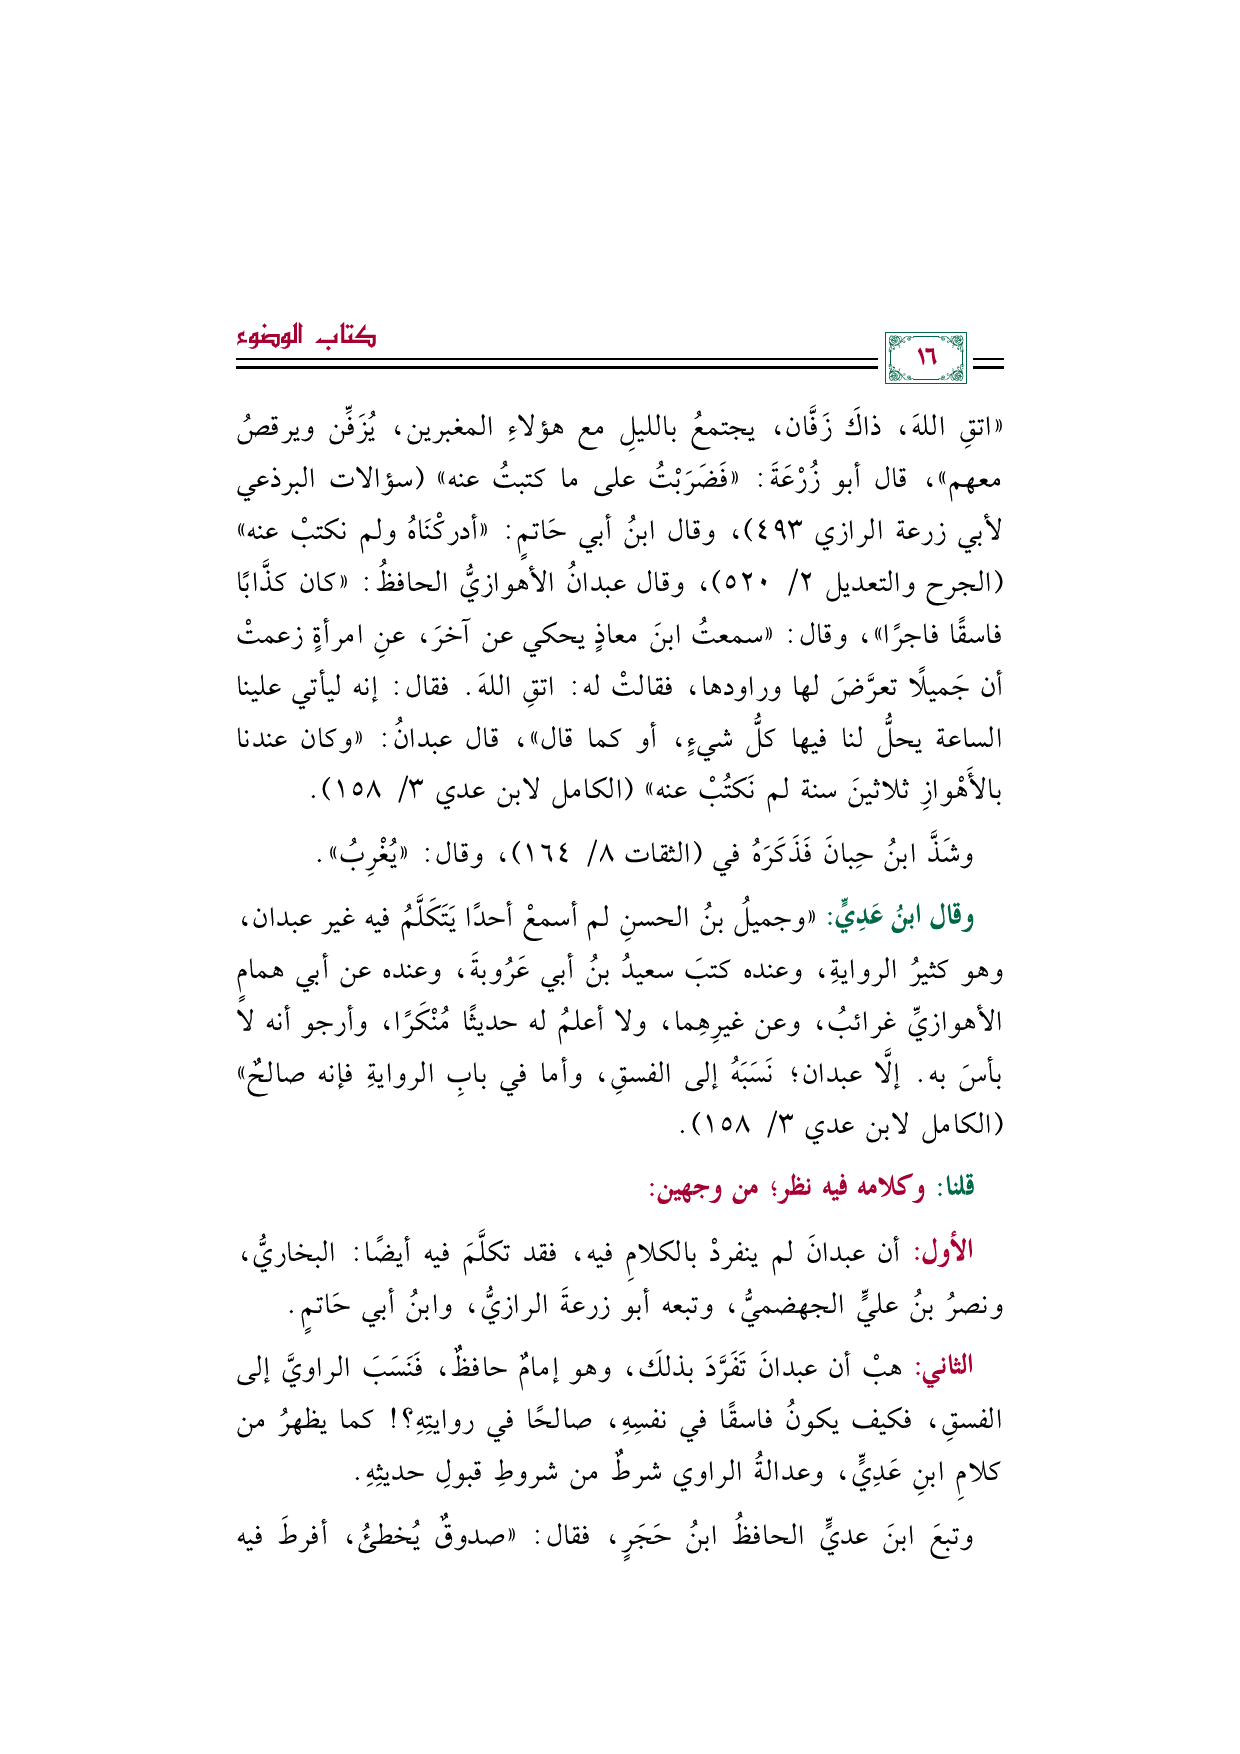 كتاب الوضوء
١٦
«اتقِ اللهَ، ذاكَ زَفَّان، يجتمعُ بالليلِ مع هؤلاءِ المغبرين، يُزَفِّن ويرقصُ
معهم»، قال أبو زُرْعَةَ: «فَضَرَبْتُ على ما كتبتُ عنه» (سؤالات البرذعي
لأبي زرعة الرازي ٤٩٣)، وقال ابنُ أبي حَاتمٍ: «أدركْنَاهُ ولم نكتبْ عنه»
(الجرح والتعديل ٢/ ٥٢٠)، وقال عبدانُ الأهوازيُّ الحافظُ: «كان كذَّابًا
فاسقًا فاجرًا»، وقال: «سمعتُ ابنَ معاذٍ يحكي عن آخرَ، عنِ امرأةٍ زعمتْ
أن جَميلًا تعرَّضَ لها وراودها، فقالتْ له: اتقِ اللهَ. فقال: إنه ليأتي علينا
الساعة يحلُّ لنا فيها كلُّ شيءٍ، أو كما قال»، قال عبدانُ: «وكان عندنا
بالأَهْوازِ ثلاثينَ سنة لم نَكتُبْ عنه» (الكامل لابن عدي ٣/ ١٥٨).
وشَذَّ ابنُ حِبانَ فَذَكَرَهُ في (الثقات ٨/ ١٦٤)، وقال: «يُغْرِبُ».
وقال ابنُ عَدِيٍّ: «وجميلُ بنُ الحسنِ لم أسمعْ أحدًا يَتَكَلَّمُ فيه غير عبدان،
وهو كثيرُ الروايةِ، وعنده كتبَ سعيدُ بنُ أبي عَرُوبةَ، وعنده عن أبي همامٍ
الأهوازيِّ غرائبُ، وعن غيرِهِما، ولا أعلمُ له حديثًا مُنْكَرًا، وأرجو أنه لا
بأسَ به. إلَّا عبدان؛ نَسَبَهُ إلى الفسقِ، وأما في بابِ الروايةِ فإنه صالحٌ»
(الكامل لابن عدي ٣/ ١٥٨).
قلنا: وكلامه فيه نظر؛ من وجهين:
الأول: أن عبدانَ لم ينفردْ بالكلامِ فيه، فقد تكلَّمَ فيه أيضًا: البخاريُّ،
ونصرُ بنُ عليٍّ الجهضميُّ، وتبعه أبو زرعةَ الرازيُّ، وابنُ أبي حَاتمٍ.
الثاني: هبْ أن عبدانَ تَفَرَّدَ بذلكَ، وهو إمامٌ حافظٌ، فَنَسَبَ الراويَّ إلى
الفسقِ، فكيف يكونُ فاسقًا في نفسِهِ، صالحًا في روايتِهِ؟! كما يظهرُ من
كلامِ ابنِ عَدِيٍّ، وعدالةُ الراوي شرطٌ من شروطِ قبولِ حديثِهِ.
وتبعَ ابنَ عديٍّ الحافظُ ابنُ حَجَرٍ، فقال: «صدوقٌ يُخطئُ، أفرطَ فيه